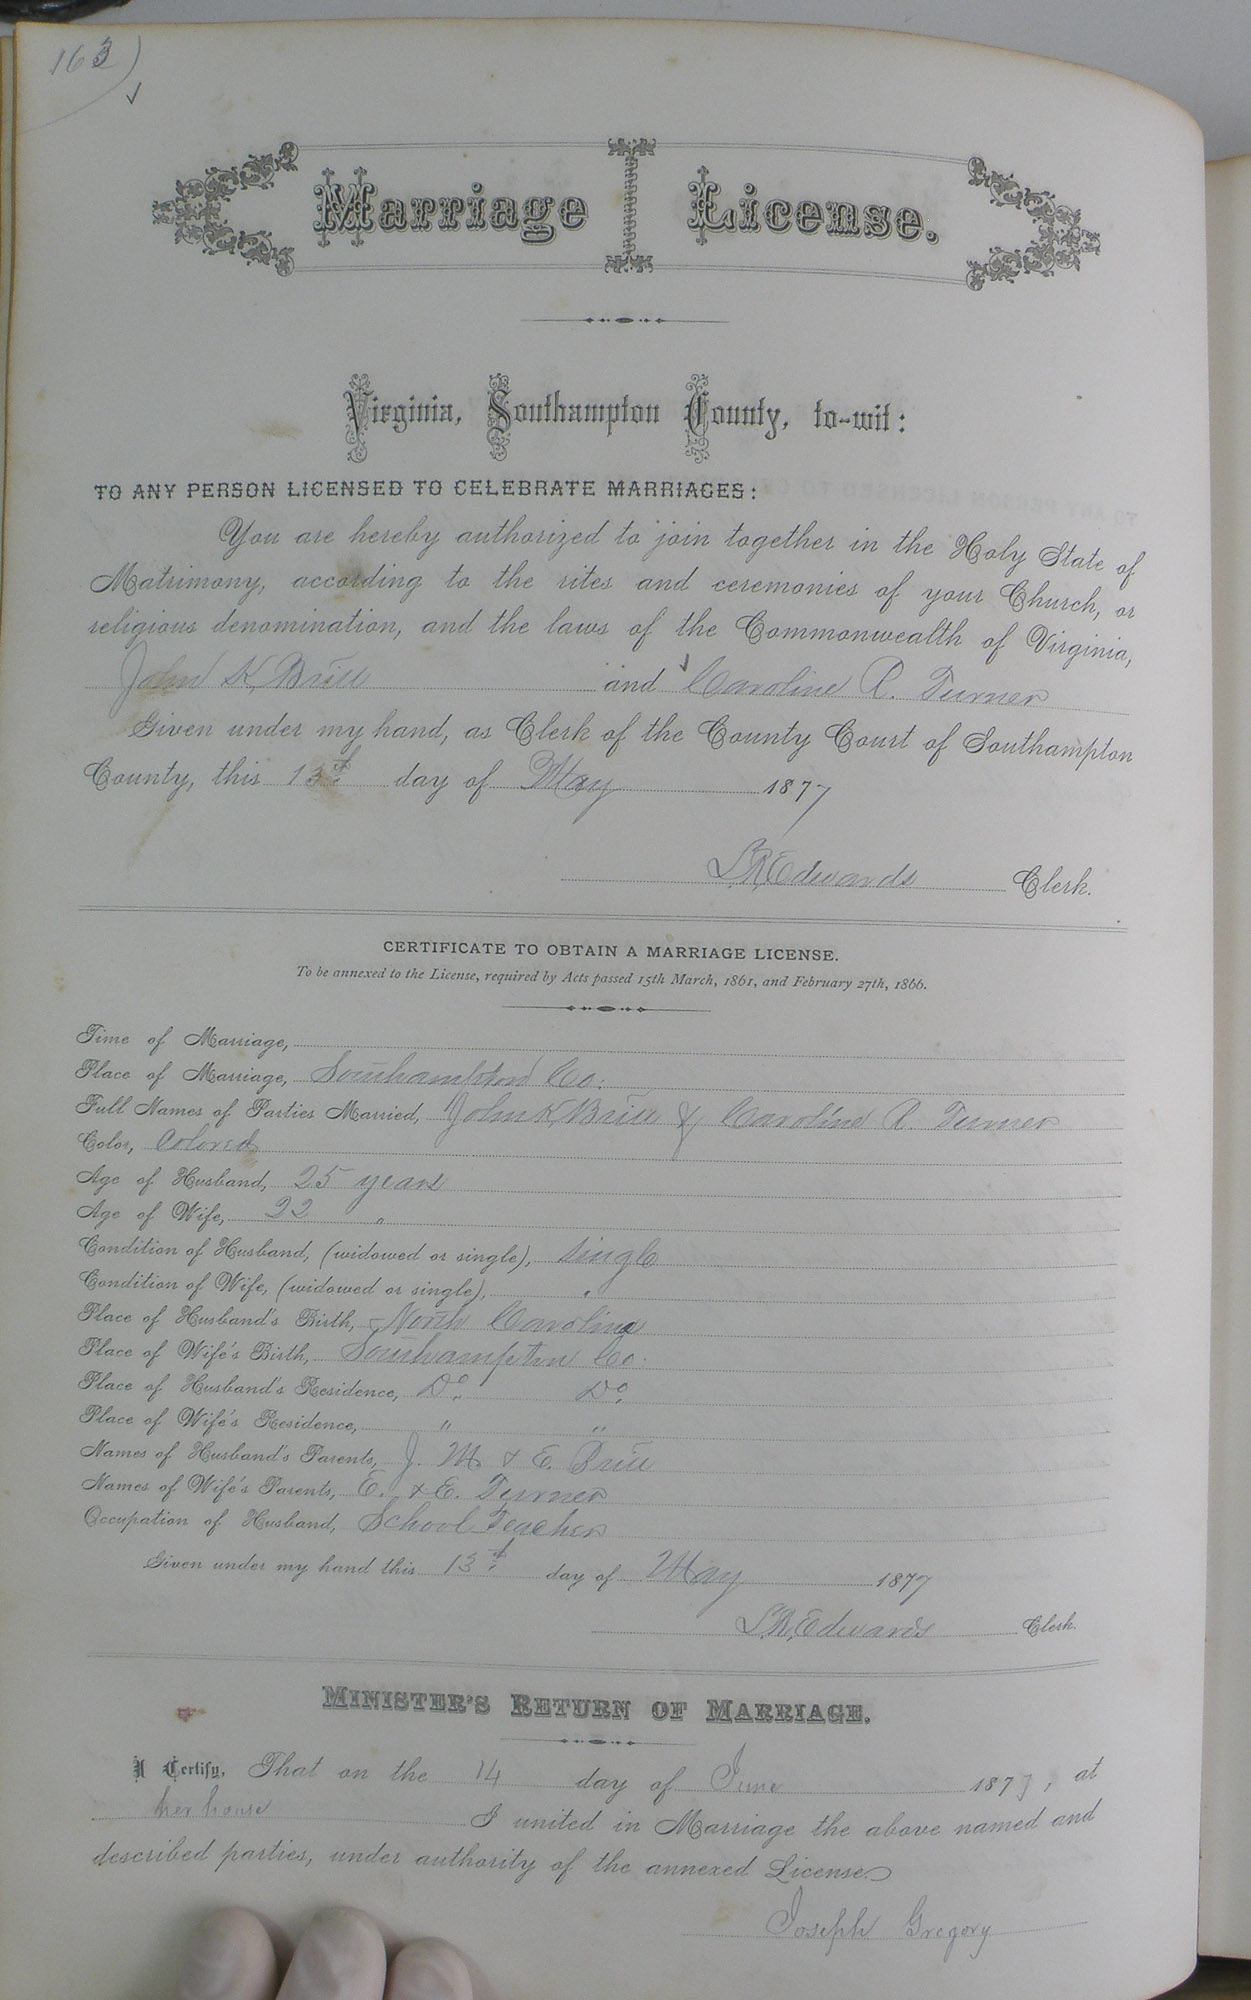 163)
Marriage License.
Virginia, Southampton County, to-wit:
TO ANY PERSON LICENSED TO CELEBRATE MARRIAGES:
You are hereby authorized to join together in the Holy State of
Matrimony, according to the rites and ceremonies of your Church, or
religious denomination, and the laws of the Commonwealth of Virginia,
John K. Britt and Caroline A. Turner
Given under my hand, as Clerk of the County Court of Southampton
County, this 13th day of May 1877
L.R. Edwards Clerk.
CERTIFICATE TO OBTAIN A MARRIAGE LICENSE.
To be annexed to the License, required by Acts passed 15th March, 1861, and February 27th, 1866.
Time of Marriage,
Place of Marriage, Southampton Co.
Full Names of Parties Married, John K. Britt & Caroline A. Turner
Color, Colored
Age of Husband, 25 years
Age of Wife, 22 "
Condition of Husband, (widowed or single), Single
Condition of Wife, (widowed or single), "
Place of Husband's Birth, North Carolina
Place of Wife's Birth, Southampton Co.
Place of Husband's Residence, Do. Do.
Place of Wife's Residence, " "
Names of Husband's Parents, J. M. & E. Britt
Names of Wife's Parents, E. & E. Turner
Occupation of Husband, School Teacher
Given under my hand this 13th day of May 1877
L.R. Edwards Clerk.
MINISTER'S RETURN OF MARRIAGE.
I Certify, That on the 14 day of June 1877, at
her house I united in Marriage the above named and
described parties, under authority of the annexed License.
Joseph Gregory